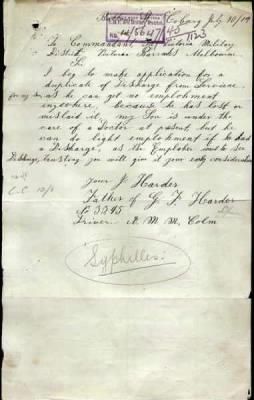 Coburg July 10/19
To Commandant, Victoria Military
District, Victoria Barracks Melbourne
Sir
I beg to make application for a
duplicate of Discharge from Service
for my son as he can get no employment
anywhere, because he has lost or
mislaid it, my Son is under the
care of a Doctor at present, but he
can do light employment if he had
a Discharge, as the Employer want to see
Discharge, trusting you will give it your early consideration
your J Harder
Father of G F Harder
No 3245
Driver A M M Colm
Syphilles.